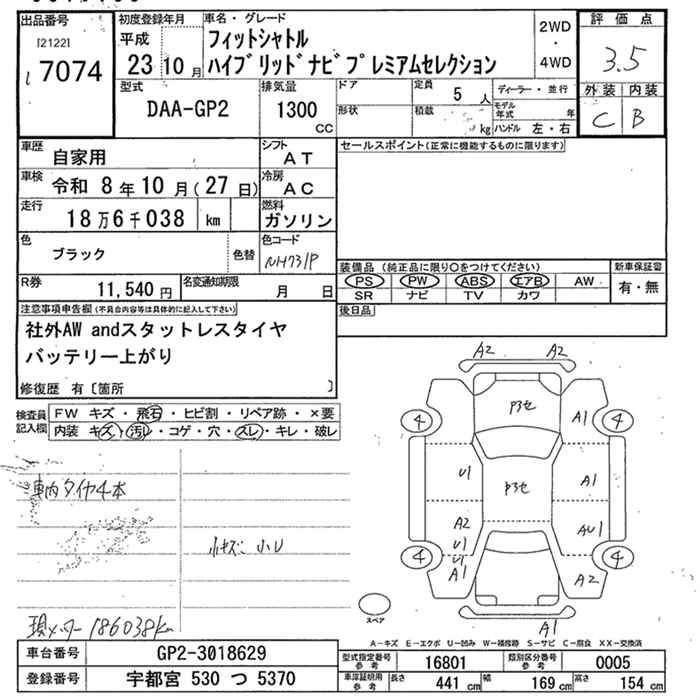 出品番号
[21221]
7074
初度登録年月
平成
23 10月
車名・グレード
フィットシャトル
ハイブリッドナビプレミアムセレクション
2WD
・
4WD
評価点
3.5
外装 内装
C B
型式
DAA-GP2
排気量
1300
CC
ドア
形状
定員
5人
積載
kg
ディーラー・並行
モデル年式 年
ハンドル 左・右
車歴
自家用
シフト
AT
車検
令和 8年10月(27日)
冷房
AC
走行
18万6千038 km
燃料
ガソリン
色
ブラック
色替
色コード
NH731P
R券
11,540円
名変通知期限
月 日
セールスポイント(正常に機能するものに限ります)
装備品 (純正品に限り○をつけてください)
PS PW ABS エアB AW
SR ナビ TV カワ
新車保証書
有・無
後日品
注意事項申告欄(不具合内容等は具体的に記入して下さい)
社外AW andスタットレスタイヤ
バッテリー上がり
修復歴 有[箇所 ]
検査員
記入欄
FW キズ・飛石・ヒビ割・リペア跡・×要
内装 キズ・汚れ・コゲ・穴・スレ・キレ・破レ
車内タイヤ4本
小キズ 小U
現メーター186038km
A2 A2
P3セ
4 A1 4
U1 P3セ A1
A2 AU1
U1
U1
4 A1 A2 4
スペア
A1
A-キズ E-エクボ U-凹み W-補修跡 S-サビ C-腐食 XX-交換済
車台番号
GP2-3018629
登録番号
宇都宮 530 つ 5370
型式指定番号
参考
16801
類別区分番号
参考
0005
車庫証明用
参考
長さ 441 cm 幅 169 cm 高さ 154 cm